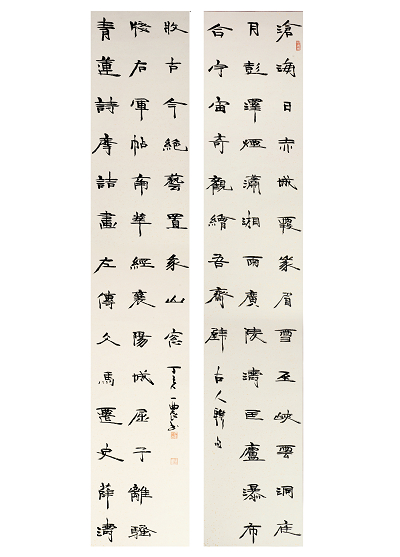 滄海日赤城霞峩眉雪巫峽雲洞庭
月彭澤煙瀟湘雨廣陵濤匡廬瀑布
合宇宙奇觀繪吾齋壁 古人聯句
青蓮詩摩詰畫左傳文馬遷史薛濤
牋右軍帖南華經襄陽城屈子離騷
收古今絕藝置我山窓 丁亥